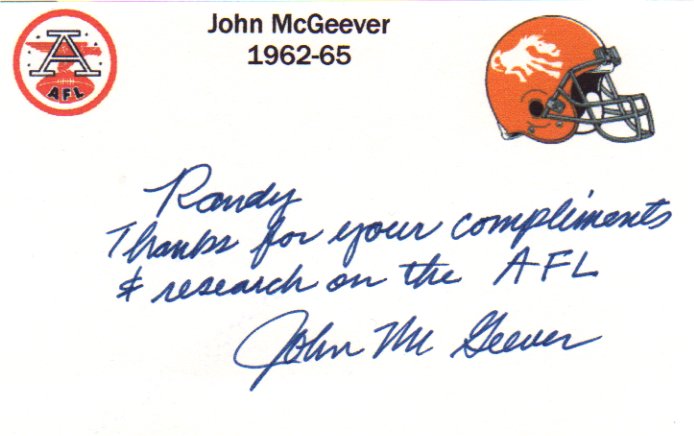 John McGeever
1962-65
A
AFL
Randy
Thanks for your compliments
& research on the AFL
John McGeever